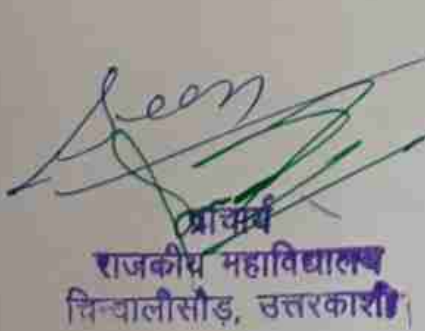 Seen
प्राचार्य
राजकीय महाविद्यालय
चिन्यालीसौड़, उत्तरकाशी